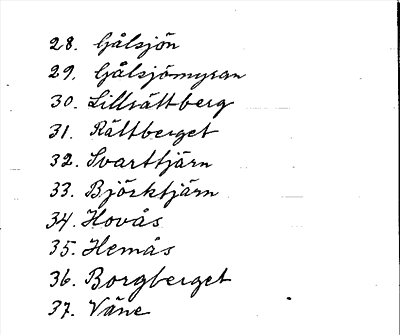 28. Gålsjön
29. Gålsjömyran
30. Lillsättberg
31. Rättberget
32. Svarttjärn
33. Björktjärn
34. Hovås
35. Hemås
36. Borgberget
37. Väne